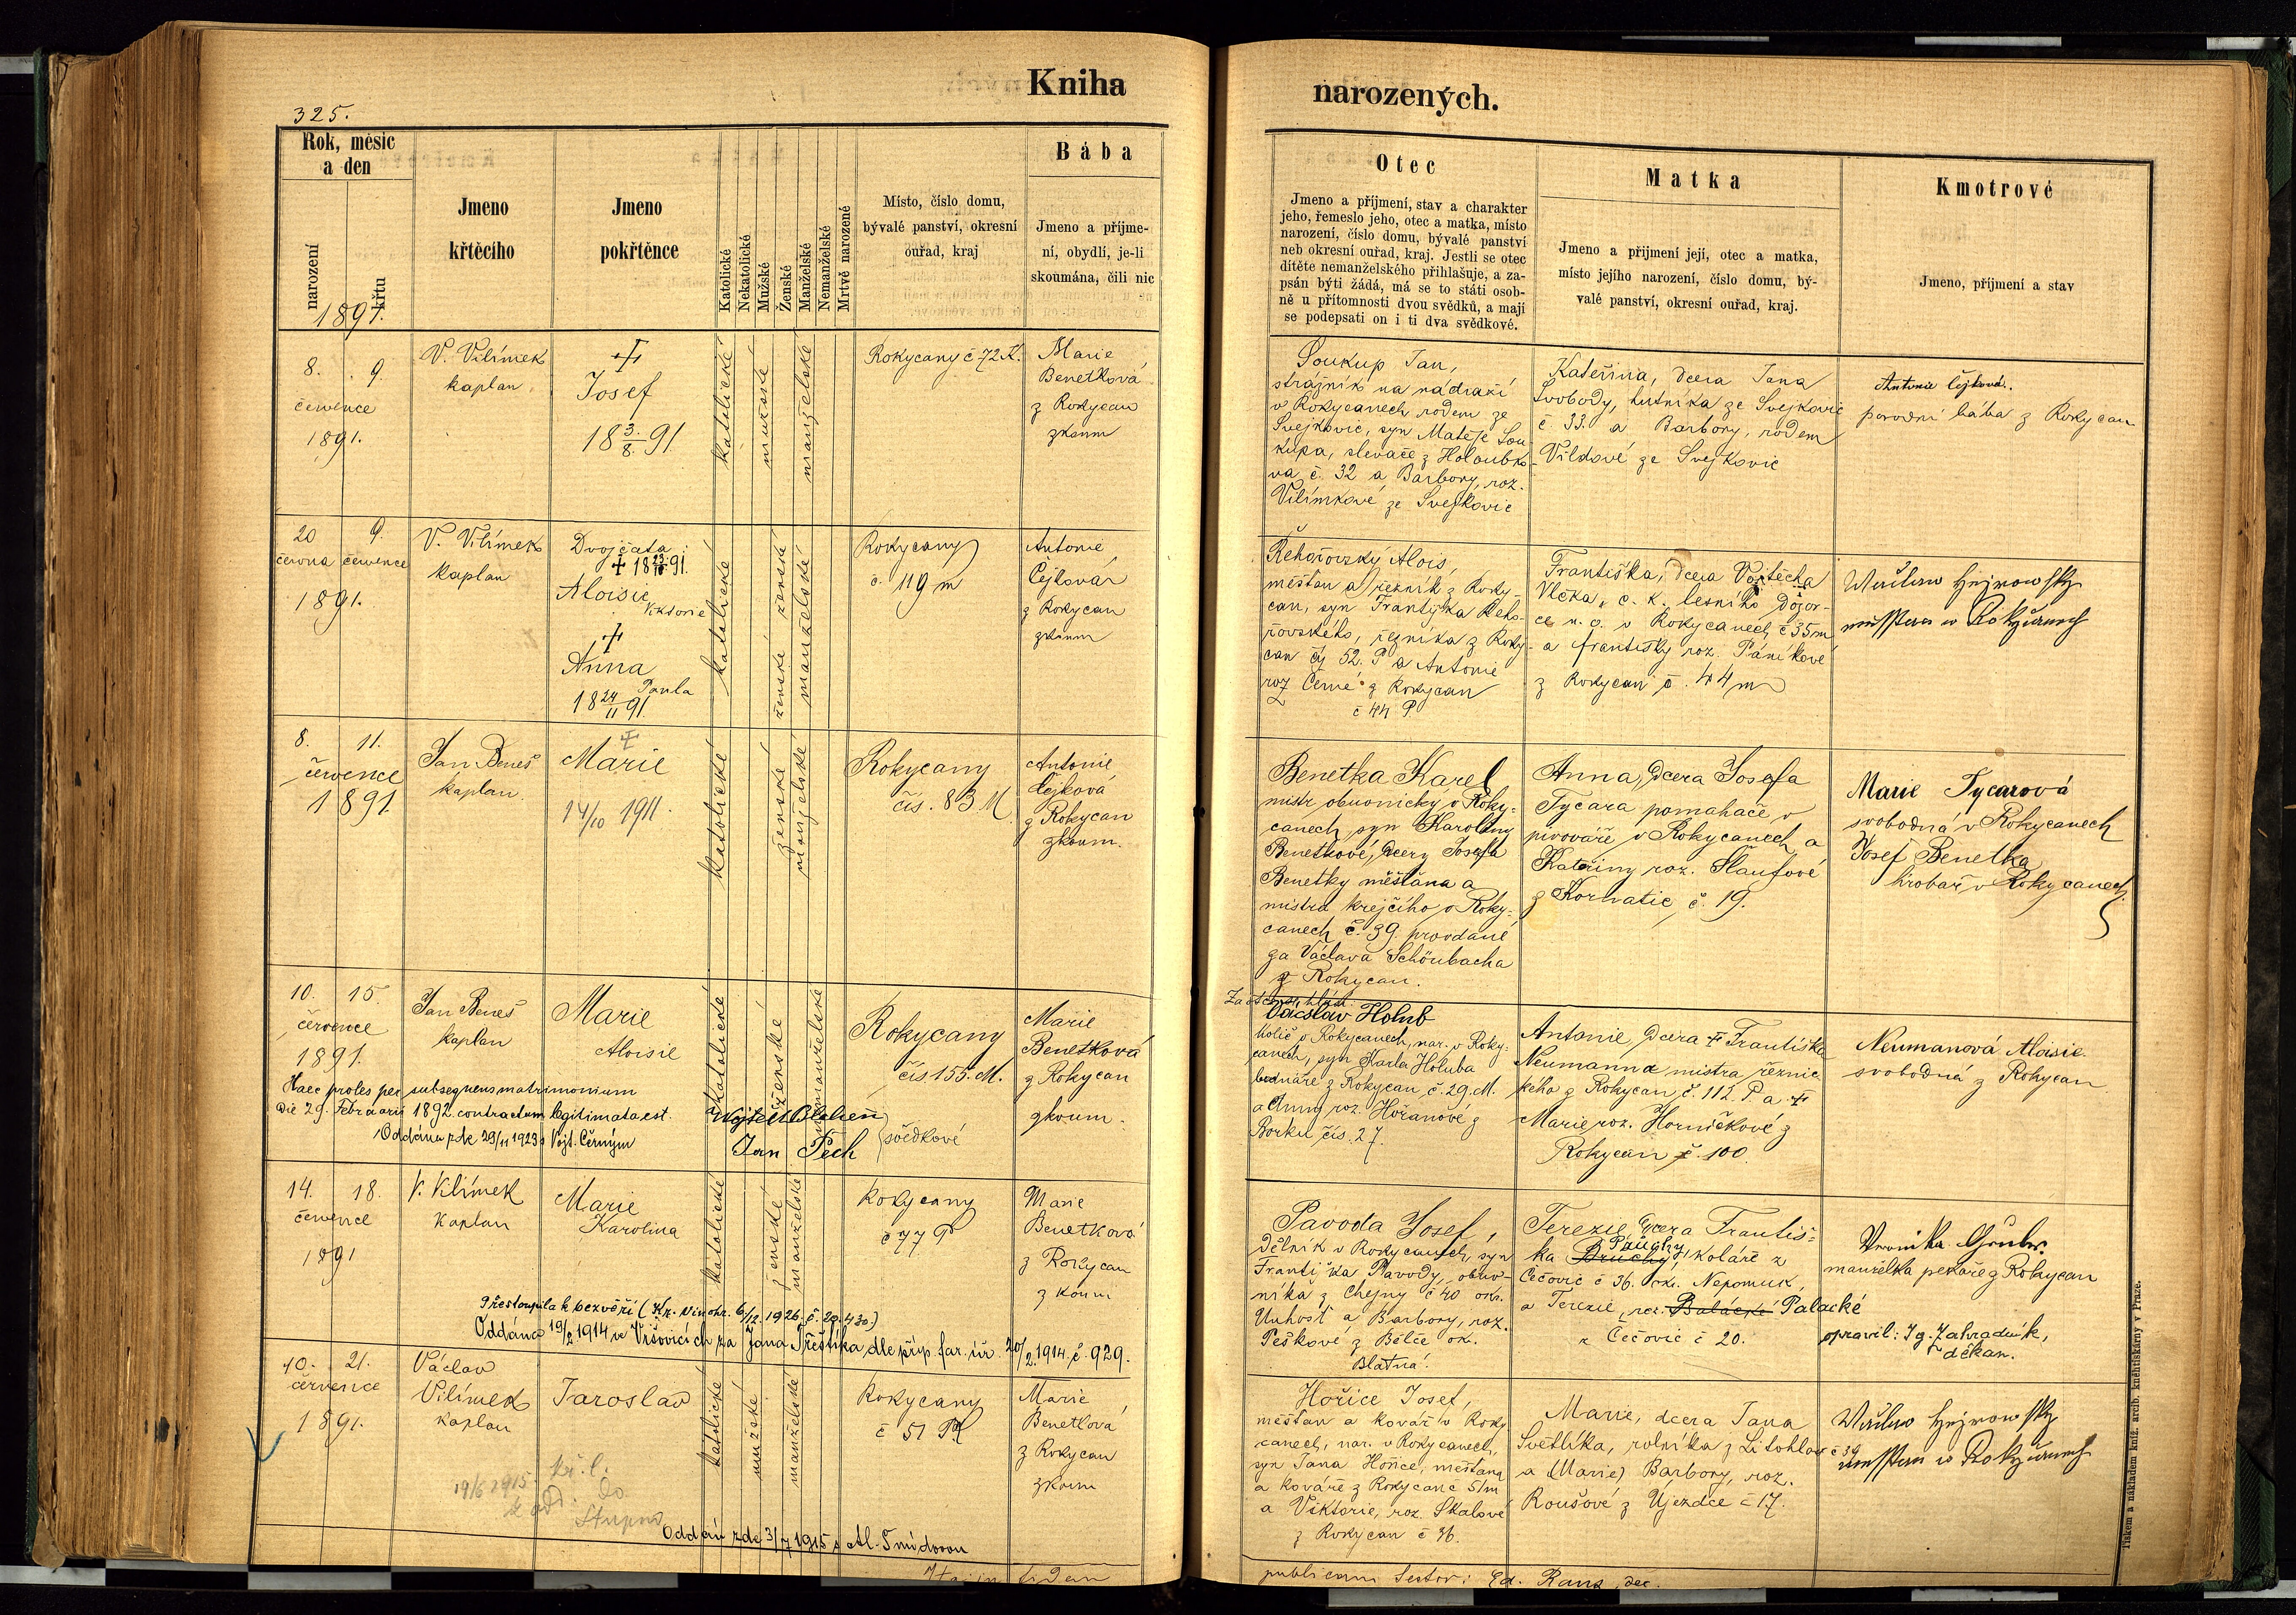 Kniha
325.
Rok, měsíc
a den
narození
křtu
1891.
Jmeno
křtěcího
Jmeno
pokřtěnce
Katolické
Nekatolické
Mužské
Ženské
Manželské
Nemanželské
Mrtvě narozené
Místo, číslo domu,
bývalé panství, okresní
ouřad, kraj
Bába
Jmeno a příjme-
ní, obydlí, je-li
skoumána, čili nic
8. 9.
července
1891.
V. Vilímek
kaplan
Josef
18 3/8. 91.
katolické
mužské
manželské
Rokycany č 72 K.
Marie
Benetková
z Rokycan
zkoum
20 9.
června července
1891.
V. Vilímek
kaplan
Dvojčata
Aloisie
Anna
Paula
18 24/11 91.
katolické
ženské ženské
manželské
Rokycany
č 119 m
Antonie
Čejková
z Rokycan
zkoum
8. 11.
července
1891
Jan Beneš
kaplan
Marie
14/10 1911.
katolické
ženské
manželské
Rokycany
čís. 83 M.
Antonie
Čejková
z Rokycan
zkoum.
10. 15.
července
1891.
Jan Beneš
kaplan
Marie
Aloisie
katolické
ženské
nemanželské
Rokycany
čís 155. M.
Marie
Benetková
z Rokycan
zkoum.
Haec proles per subsequens matrimonium
die 29. Februarii 1892 contractum legitimata est.
Oddána zde 29/11 1923 s Vojt. Černým
Jan Pech
svědkové
14. 18.
července
1891
V. Vilímek
kaplan
Marie
Karolina
katolické
ženské
manželské
Rokycany
č 77 P
Marie
Benetková
z Rokycan
zkoum
Přestoupila k bezvěří (Kr. Vinohr. 6/12. 1926, č. 29.430.)
Oddána 19/2 1914 ve Vršovicích za Jana Třeštíka dle příp. far. úř. 20/2. 1914. č. 929.
10. 21.
července
1891.
Václav
Vilímek
kaplan
Jaroslav
katolické
mužské
manželské
Rokycany
č 51 Pl
Marie
Benetková
z Rokycan
zkoum
19/6 1915.
Oddán zde 3/7 1915 s Al. Šmídovou
narozených.
Otec
Jmeno a příjmení, stav a charakter
jeho, řemeslo jeho, otec a matka, místo
narození, číslo domu, bývalé panství
neb okresní ouřad, kraj. Jestli se otec
dítěte nemanželského přihlašuje, a za-
psán býti žádá, má se to státi osob-
ně u přítomnosti dvou svědků, a mají
se podepsati on i ti dva svědkové.
Matka
Jmeno a příjmení její, otec a matka,
místo jejího narození, číslo domu, bý-
valé panství, okresní ouřad, kraj.
Kmotrové
Jmeno, příjmení a stav
Soukup Jan,
strážník na nádraží
v Rokycanech rodem ze
Svejkovic, syn Matěje Sou-
kupa, slevače z Holoubko-
va č. 32 a Barbory, roz.
Vilímkové ze Svejkovic
Kateřina, dcera Jana
Svobody, hutníka ze Svejkovic
č 33. a Barbory, rodem
Vildové ze Svejkovic
Antonie Čejková.
porodní bába z Rokycan
Řehořovský Alois,
měšťan a řezník z Roky-
can, syn Františka Řeho-
řovského, řezníka z Roky-
can čj 52. P a Antonie
roz Černé z Rokycan
č 44 P
Františka, dcera Vojtěcha
Vlčka, c. k. lesního dozor-
ce n. o. v Rokycanech č 35 m
a Františky roz. Páníkové
z Rokycan č. 44 m
Benetka Karel
mistr obuvnický v Roky-
canech syn Karolíny
Benetkové, dcery Josefa
Benetky měšťana a
mistra krejčího v Roky-
canech č. 39. provdané
za Václava Schönbacha
z Rokycan.
Anna, dcera Josefa
Tycara pomahače v
pivováře v Rokycanech a
Kateřiny roz. Šlaufové
z Kornatic č. 19.
Marie Tycarová
svobodná v Rokycanech
Josef Benetka
hrobař v Rokycanech.
Václav Holub
kolář v Rokycanech, nar. v Roky-
canech, syn Karla Holuba
bednáře z Rokycan č. 29. M.
a Anny roz. Hořanové z
Borku čís. 27.
Antonie, dcera + Františka
Neumanna mistra řeznic
kého z Rokycan č. 112 P. a +
Marie roz. Horničkové z
Rokycan č. 100.
Neumanová Aloisie
svobodná z Rokycan
Pavoda Josef,
dělník v Rokycanech, syn
Františka Pavody, obuv-
níka z Chejny č 40 okr.
a Barbory, roz.
Peškové z Bělče ok.
Blatná.
Terezie, dcera Františ-
ka koláře z
Čečovic č 36. ok. Nepomuk,
a Terezie, roz. Balácké Palacké
z Čečovic č 20.
manželka pekaře z Rokycan
opravil: Ig. Zahradník,
děkan.
Hořice Josef,
měšťan a kovář v Roky
canech, nar. v Rokycanech,
syn Jana Hořice, měšťana
a kováře z Rokycan č 51 m
a Viktorie, roz. Skalové
z Rokycan č 36.
Marie, dcera Jana
Světlíka, rolníka z Litohlav č 39
a (Marie) Barbory, roz.
Roušové z Újezdce č 17.
publicam testor: Ed. Rana, dec.
Tiskem a nákladem kníž. arcib. knihtiskárny v Praze.